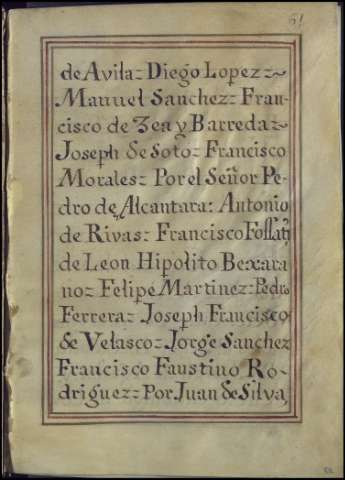 61
de Avila= Diego Lopez=~
Manuel Sanchez= Fran-
cisco de Zea y Barreda=~
Joseph de Soto= Francisco
Morales= Por el Señor Pe-
dro de Alcantara= Antonio
de Rivas= Francisco Fossati
de Leon Hipolito Bexara
no= Felipe Martinez= Pedro
Ferrera= Joseph Francisco
de Velasco= Jorge Sanchez
Francisco Faustino Ro-
driguez= Por Juan de Silva